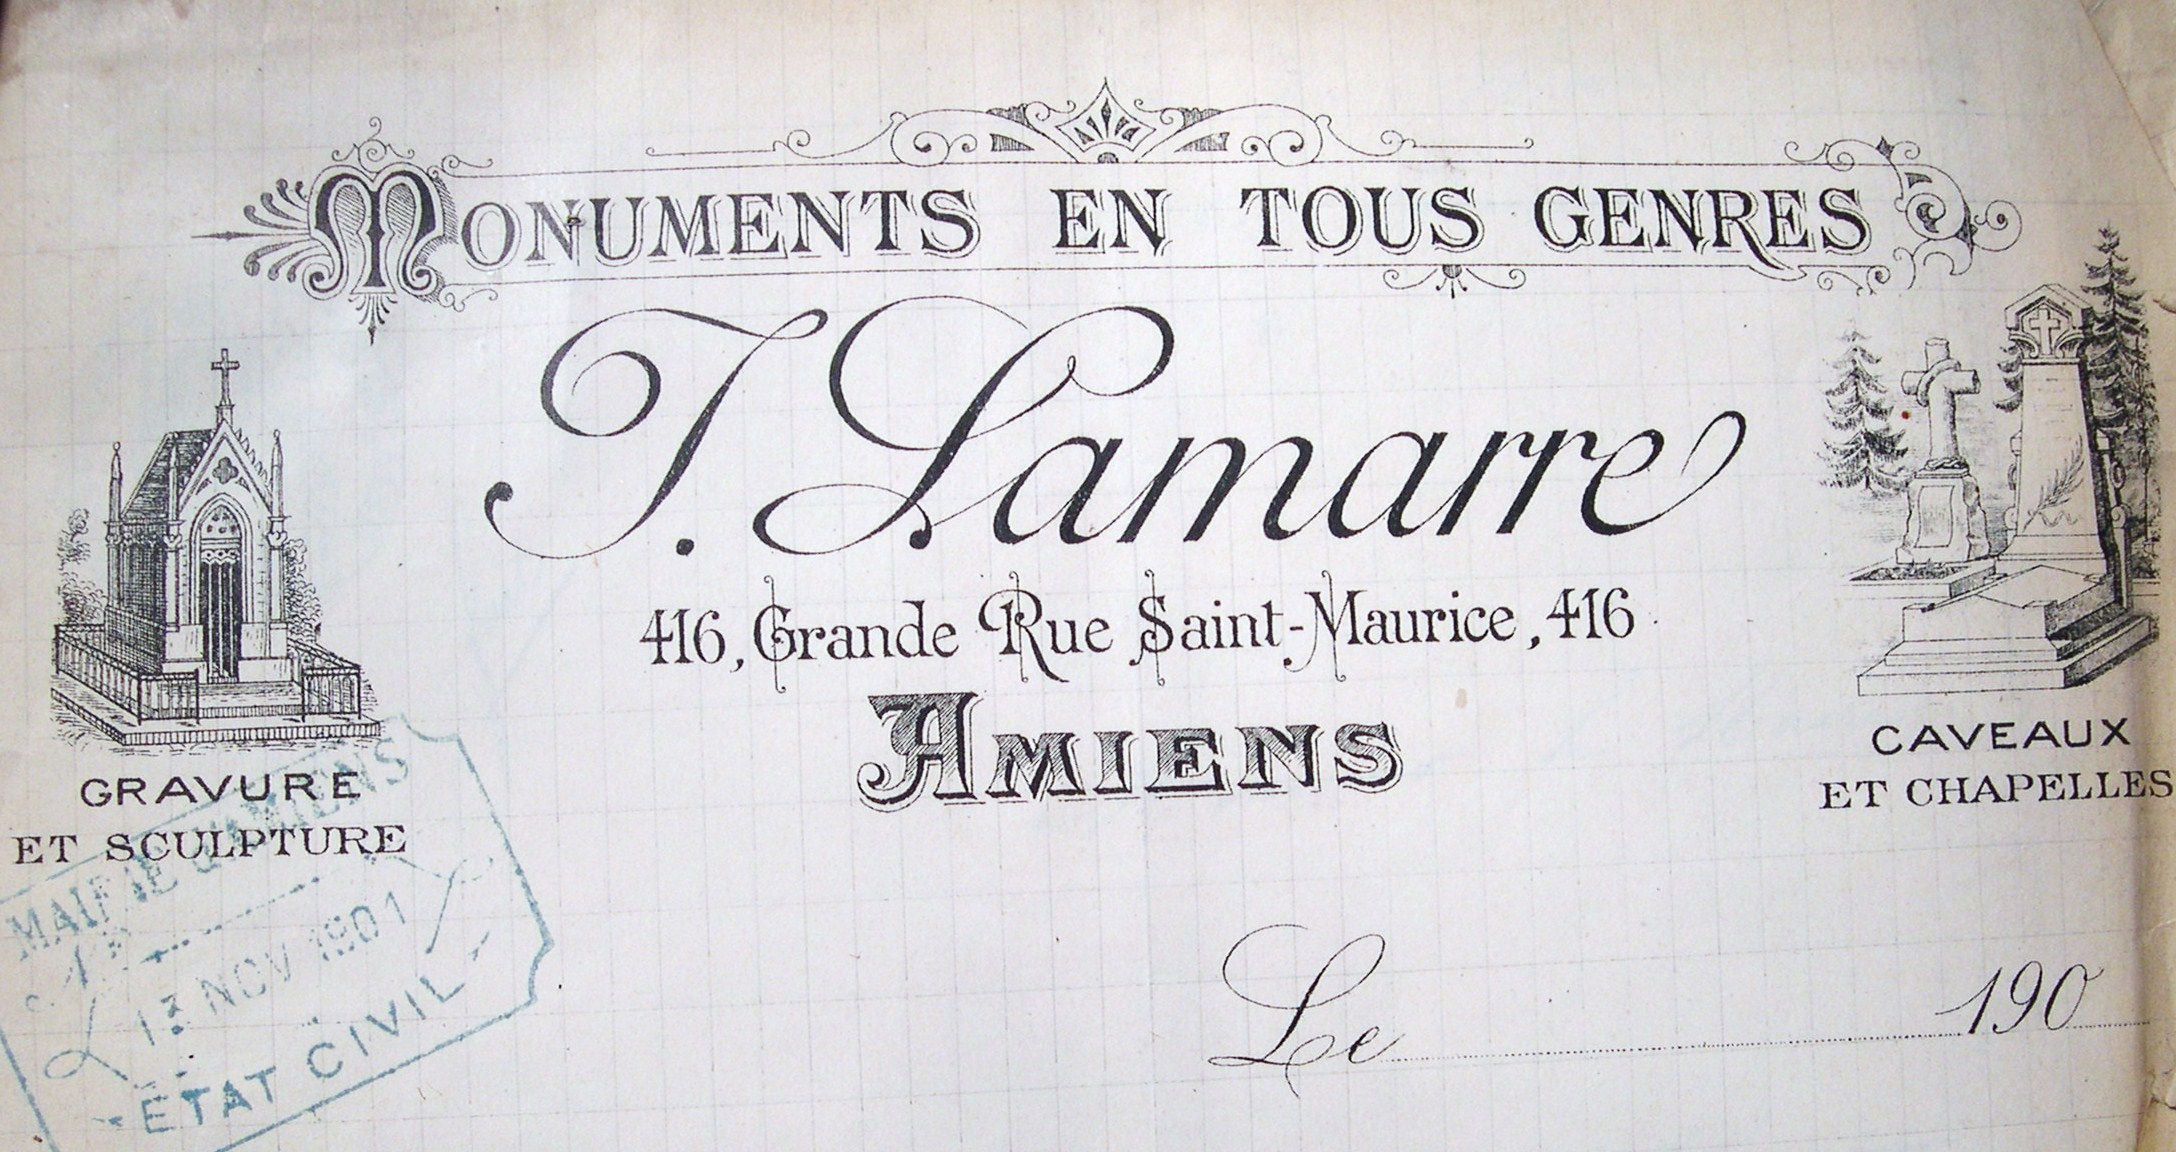 MONUMENTS EN TOUS GENRES
T. Lamarre
416, Grande Rue Saint-Maurice, 416
AMIENS
GRAVURE
ET SCULPTURE
CAVEAUX
ET CHAPELLES
MAIRIE D'AMIENS
13 NOV 1901
ETAT CIVIL
Le 190